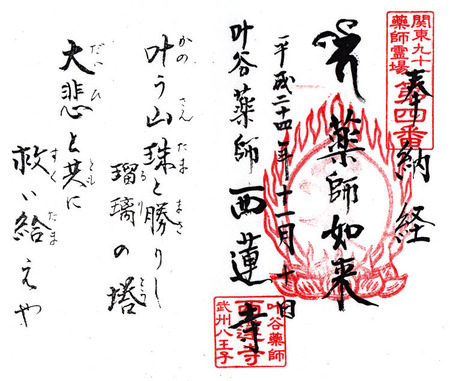 関東九十一
薬師霊場
第四番
奉納経
薬師如来
平成二十四年十一月十日
叶谷薬師 西蓮寺
叶谷薬師
西蓮寺
武州八王子
叶う山珠と勝りし
かの さん たま まさ
瑠璃の塔
るり とう
大悲と共に
だいひ とも
救い給えや
すく たま